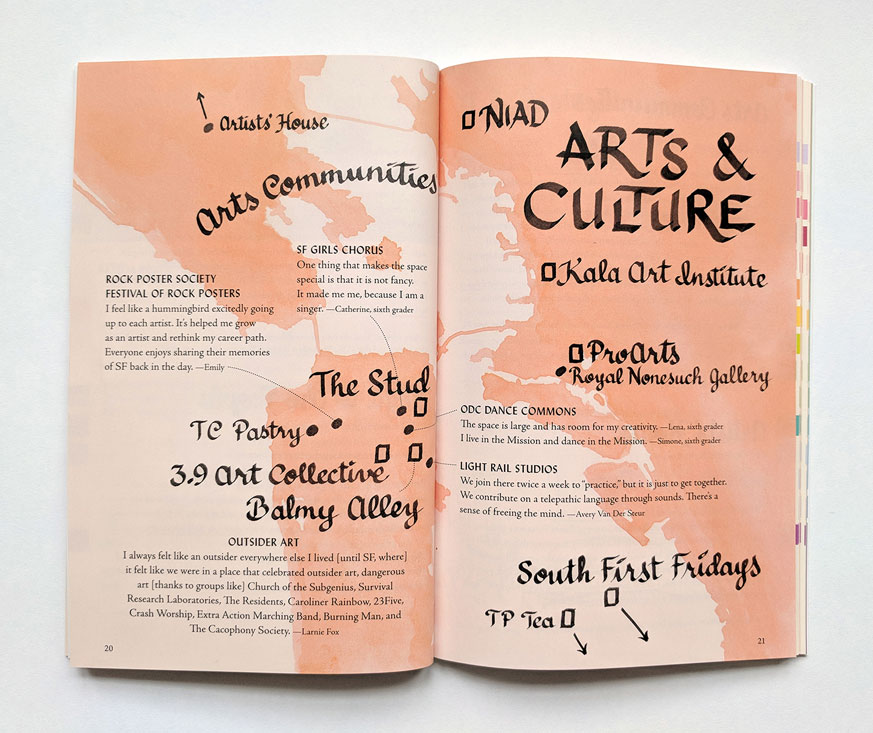 Artists' House
Arts Communities
SF GIRLS CHORUS
One thing that makes the space
special is that it is not fancy.
It made me me, because I am a
singer. —Catherine, sixth grader
ROCK POSTER SOCIETY
FESTIVAL OF ROCK POSTERS
I feel like a hummingbird excitedly going
up to each artist. It's helped me grow
as an artist and rethink my career path.
Everyone enjoys sharing their memories
of SF back in the day. —Emily
The Stud
TC Pastry
3.9 Art Collective
Balmy Alley
OUTSIDER ART
I always felt like an outsider everywhere else I lived [until SF, where]
it felt like we were in a place that celebrated outsider art, dangerous
art [thanks to groups like] Church of the Subgenius, Survival
Research Laboratories, The Residents, Caroliner Rainbow, 23Five,
Crash Worship, Extra Action Marching Band, Burning Man, and
The Cacophony Society. —Larnie Fox
20
NIAD
ARTS &
CULTURE
Kala Art Institute
ProArts
Royal Nonesuch Gallery
ODC DANCE COMMONS
The space is large and has room for my creativity. —Lena, sixth grader
I live in the Mission and dance in the Mission. —Simone, sixth grader
LIGHT RAIL STUDIOS
We join there twice a week to “practice,” but it is just to get together.
We contribute on a telepathic language through sounds. There's a
sense of freeing the mind. —Avery Van Der Steur
South First Fridays
TP Tea
21